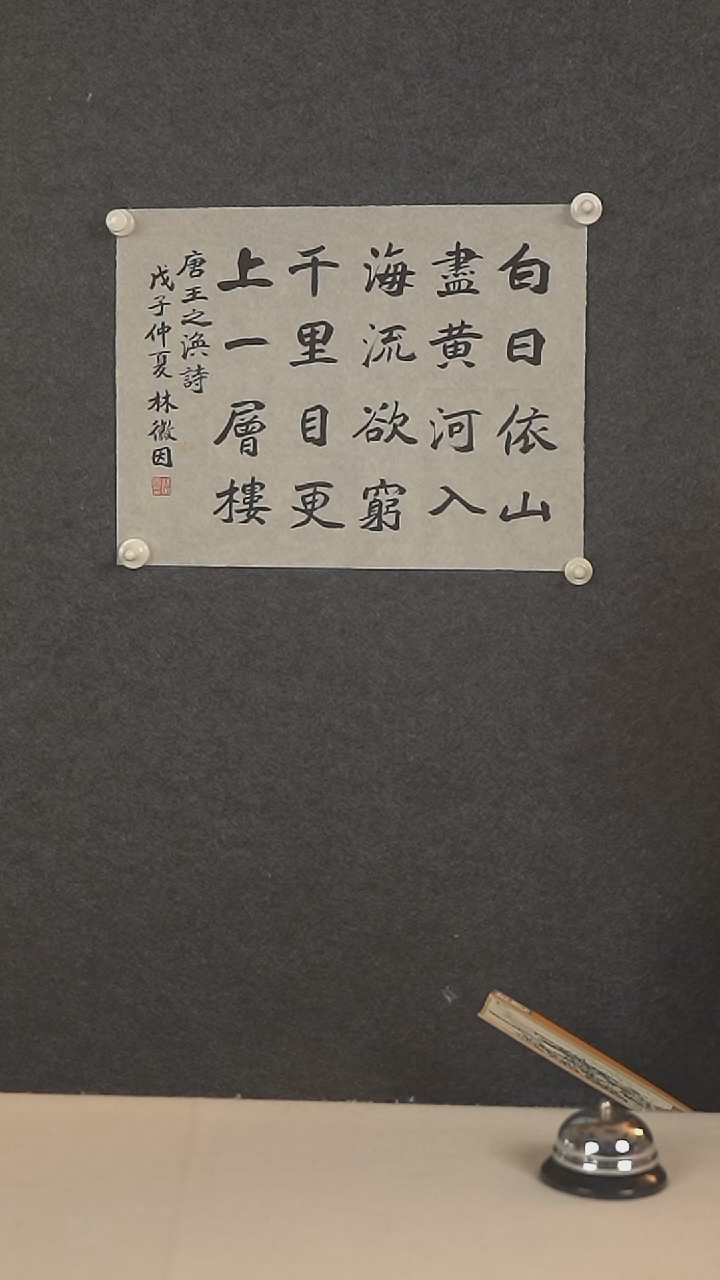 白日依山
盡黄河入
海流欲窮
千里目更
上一層樓
唐王之渙詩
戊子仲夏 林徽因